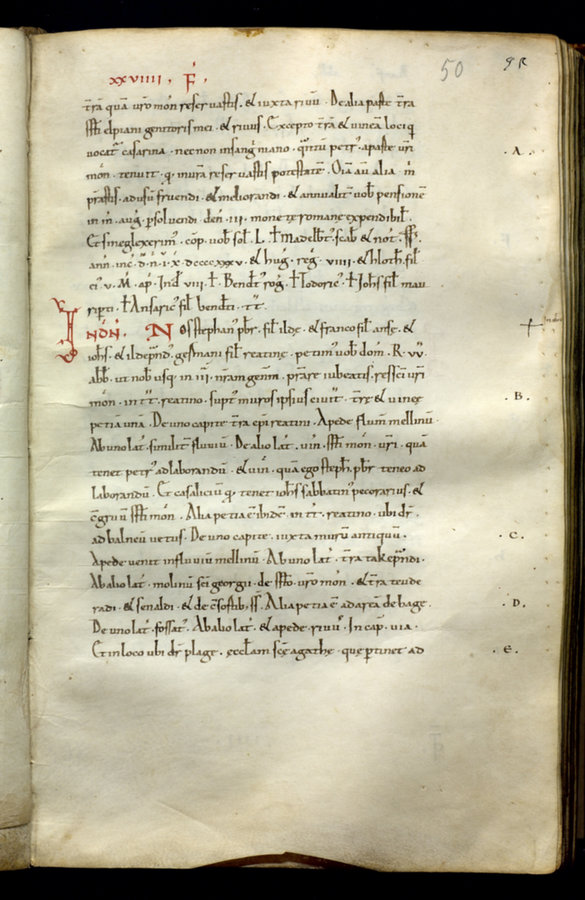 xxviiii. F.
50
trā quā uro mōn reseruastis. & iuxta riuū. De alia parte trā
sstī cipiani genitoris mei. & riuus. Excepto trā & uineā loci q
uocat casarina. nec non in sang mano. quātū petr' a parte uri
mōn. tenuit. q inura reseruastis potestatē. Oīa aū alia in
prastis. ad usū fruendi. & meliorandi. & annualit uob pensionē
in m. aug. psoluendi. den. iii. monete romane expendibil.
Et si neglexerim. cōp. uob sol. L. ł Madelbt' scab & not. ss.
ann. inc. d. n. i. x. dccccxxxv. & hug. reg. viiii. & hloth. fil
ei' v. M. ap. Ind. viii. ł. Bendt' rog. ł Todoric'. ł Iohs fil mau
riperti. ł Ansaric' fil bendti. tt.
IN DN. Nos stephan' pbr. fil ilde. & franco fil anse. &
iohs. & ildepnd'. gesmani fil reatine. petim' uob dom. R. uu.
abb. ut nob usq. in iii. nram genm. prare iubeatis. res sci uri
mōn. in tt. reatino. supt' muros ipsius ciuit. tre & uinee
petia una. De uno capite. tra epi reatini. A pede flum mellinu.
Ab uno lat. similit fluuiu. De alio lat. uin. sstī mon. uri. quā
tenet petr' ad laborandū. & uin. quā ego steph. pbr. teneo ad
laborandū. Et casaliciū q. tenet iohs sabbatin' pecorarius. &
cgruu sstī mōn. Alia petia ē ibidē. in tt. reatino. ubi dr.
ad balneū uetus. De uno capite. iuxta murū antiquū.
A pede uenit in fluuiū mellinū. Ab uno lat. tra takepndi.
Ab alio lat. molinū sci georgii. de ssto uro mōn. & tra teude
radi. & senaldi. & de csortib. ss. Alia petia ē ad areā de hage.
De uno lat. fossat'. Ab alio lat. & a pede. riuu'. In cap. uia.
Et in loco ubi dr plage. ecclam sce agathe. que ptinet ad
.A.
.B.
.C.
.D.
.E.